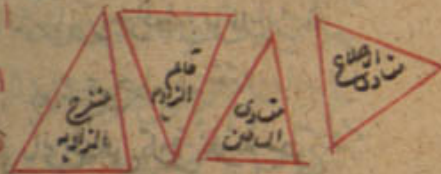 متساوى الاضلاع
متساوى
الساقين
قايم
الزاويه
منفرج
الزاويه